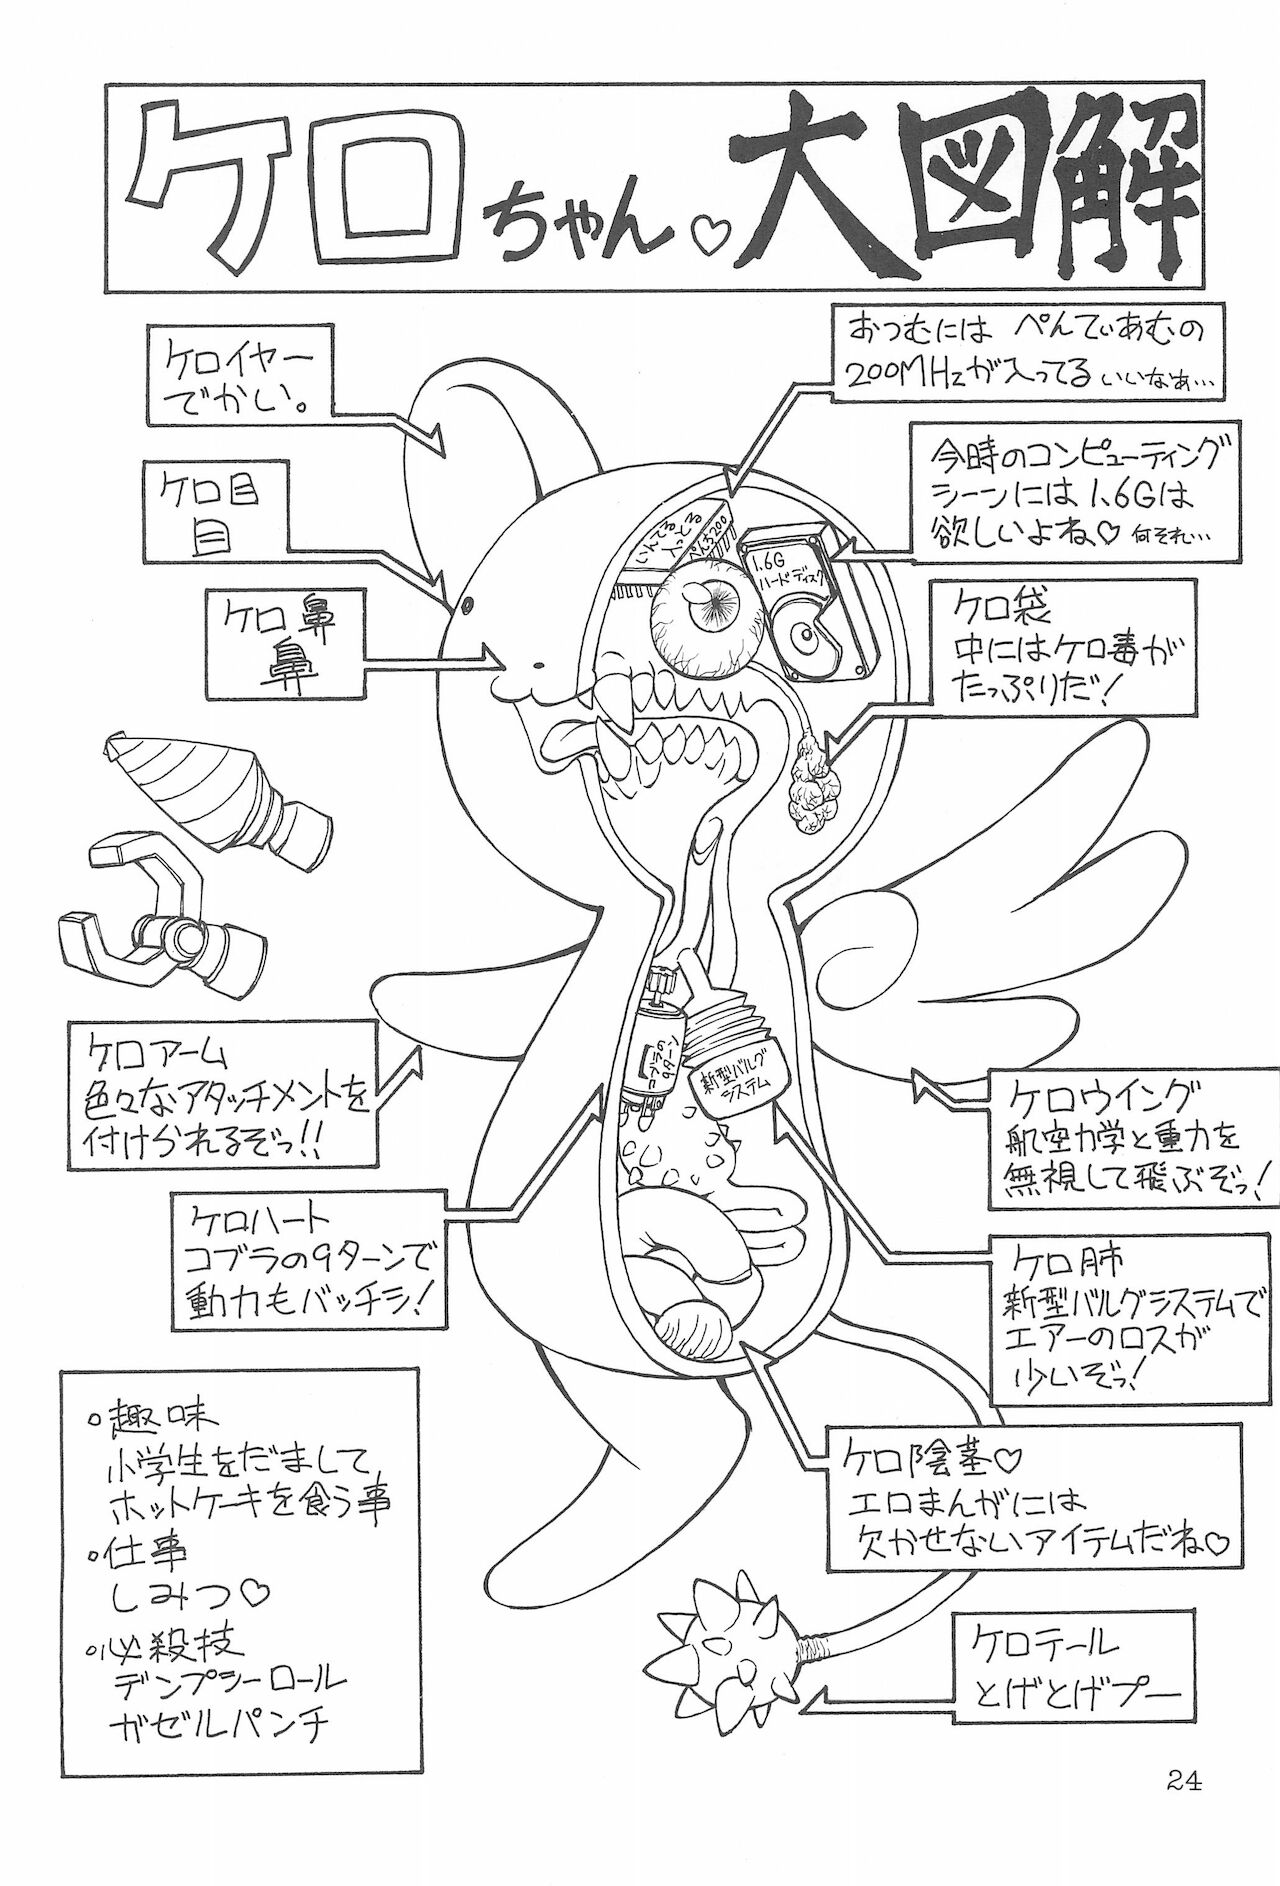 ケロちゃん♡大図解
おつむには ぺんてぃあむの
200MHzが入ってる いいなぁ…
ケロイヤー
でかい。
今時のコンピューティング
シーンには1.6Gは
欲しいよね♡ 何それ…
ケロ目
目
いんてる
入っとる
ぺんち200
1.6G
ハードディスク
ケロ鼻
鼻
ケロ袋
中にはケロ毒が
たっぷりだ!
ケロアーム
色々なアタッチメントを
付けられるぞっ!!
コブラの
9ターン
新型バルグ
システム
ケロウイング
航空力学と重力を
無視して飛ぶぞっ!
ケロハート
コブラの9ターンで
動力もバッチシ!
ケロ肺
新型バルグシステムで
エアーのロスが
少いぞっ!
。趣味
小学生をだまして
ホットケーキを食う事
。仕事
しみつ♡
。必殺技
デンプシーロール
ガゼルパンチ
ケロ陰茎♡
エロまんがには
欠かせないアイテムだね♡
ケロテール
とげとげプー
24